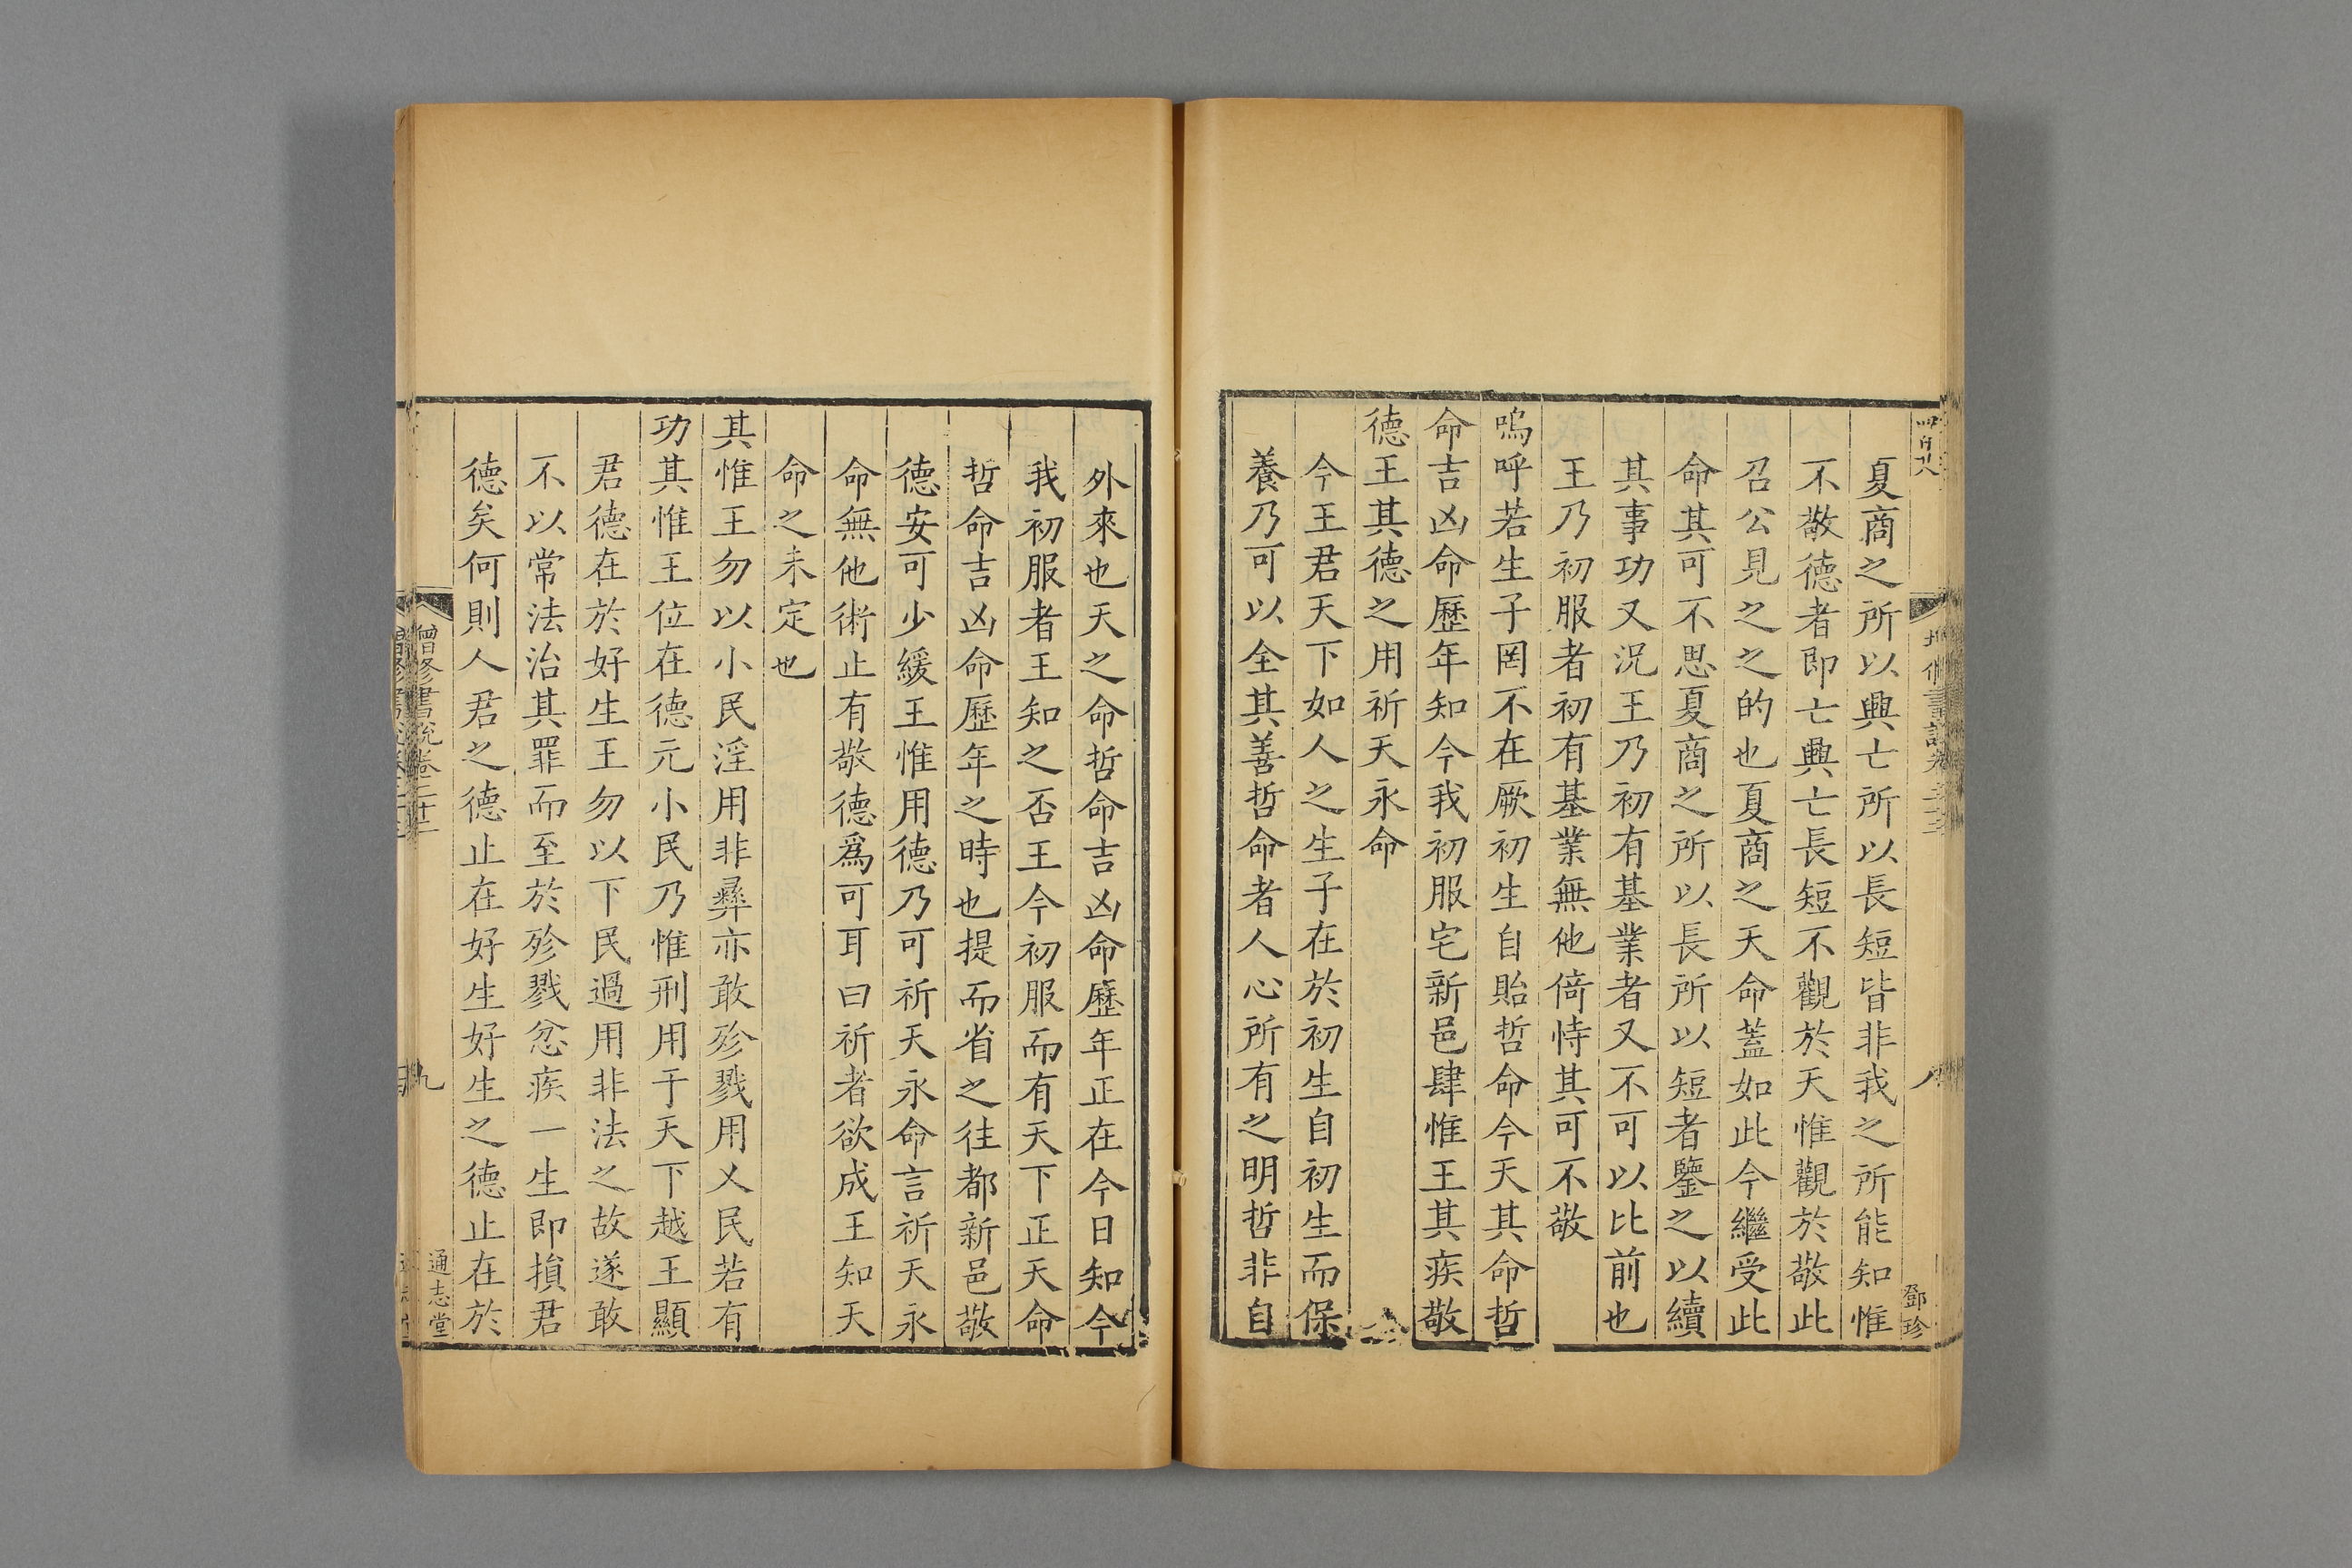 四百八
鄧珍
夏商之所以興亡所以長短皆非我之所能知惟
不敬德者即亡興亡長短不觀於天惟觀於敬此
召公見之之的也夏商之天命蓋如此今繼受此
命其可不思夏商之所以長所以短者鑒之以續
其事功又況王乃初有基業者又不可以比前也
王乃初服者初有基業無他倚恃其可不敬
嗚呼若生子罔不在厥初生自貽哲命今天其命哲
命吉凶命歷年知今我初服宅新邑肆惟王其疾敬
德王其德之用祈天永命
今王君天下如人之生子在於初生自初生而保
養乃可以全其善哲命者人心所有之明哲非自
外來也天之命哲命吉凶命歷年正在今日知今
我初服者王知之否王今初服而有天下正天命
哲命吉凶命歷年之時也提而省之往都新邑敬
德安可少緩王惟用德乃可祈天永命言祈天永
命無他術止有敬德爲可耳曰祈者欲成王知天
命之未定也
其惟王勿以小民淫用非彝亦敢殄戮用乂民若有
功其惟王位在德元小民乃惟刑用于天下越王顯
君德在於好生王勿以下民過用非法之故遂敢
不以常法治其罪而至於殄戮忿疾一生即損君
德矣何則人君之德止在好生好生之德止在於
增修書說卷二十二
九
通志堂